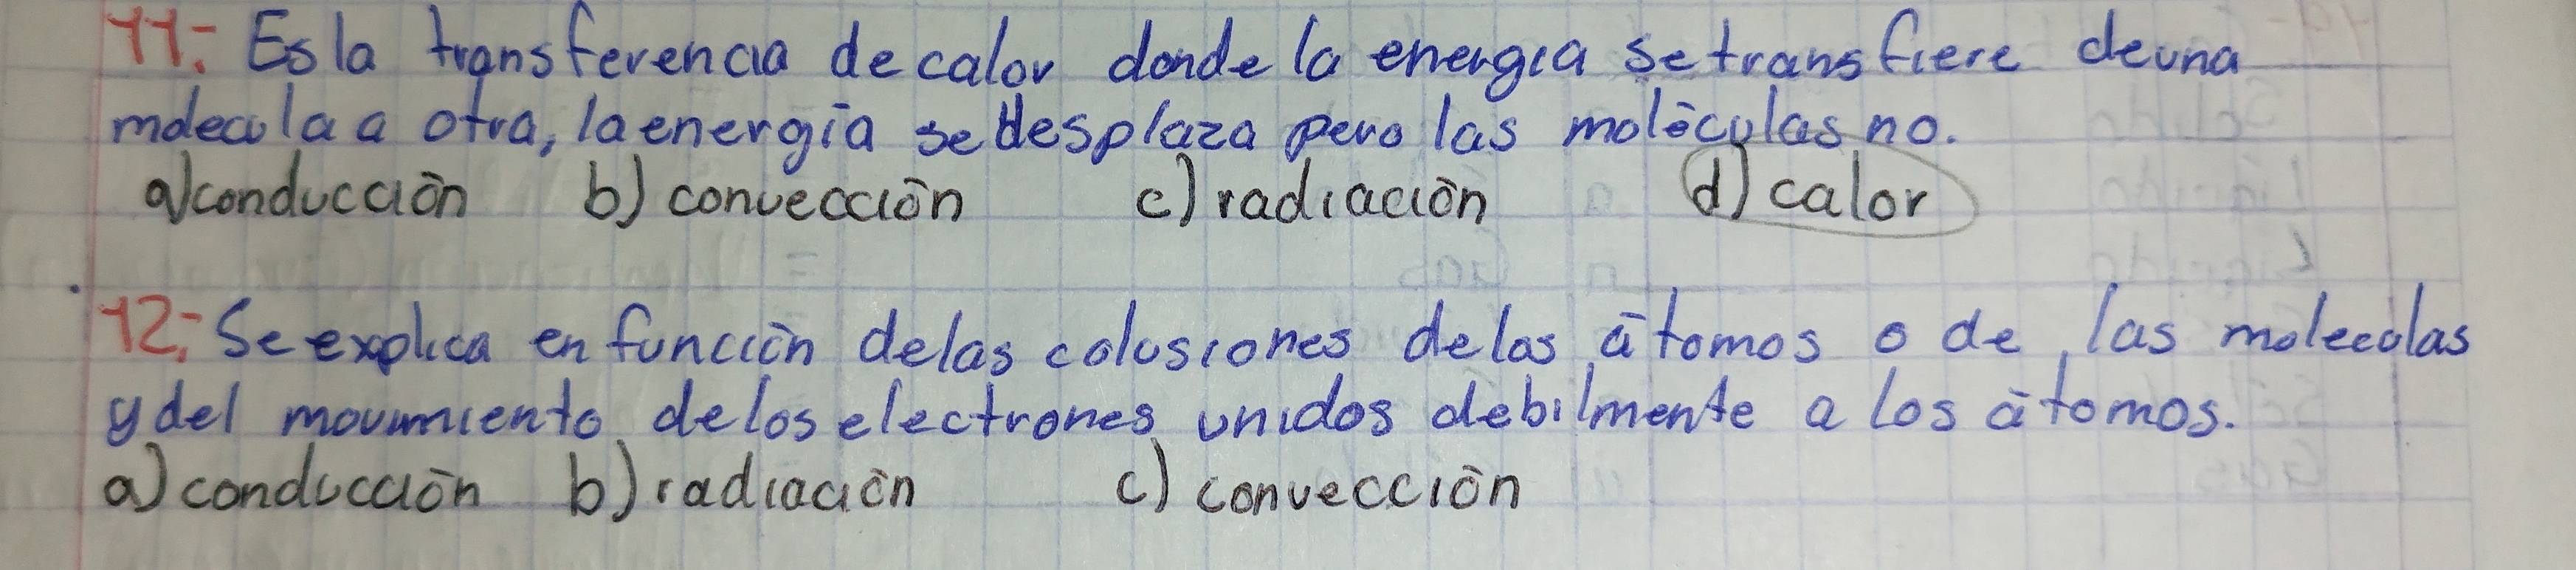 11: Es la transferencia de calor donde la energia se transfiere de una
molecula a otra, la energía se desplaza pero las moléculas no.
a) conducción b) convección c) radiación d) calor
12: Se explica en función de las colusiones de los átomos o de las molecolas
y del movimiento de los electrones unidos debilmente a los átomos.
a) conducción b) radiación c) convección